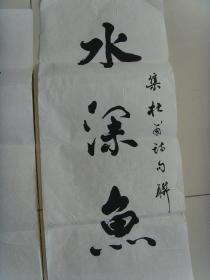 水深魚
集杜甫詩句聯